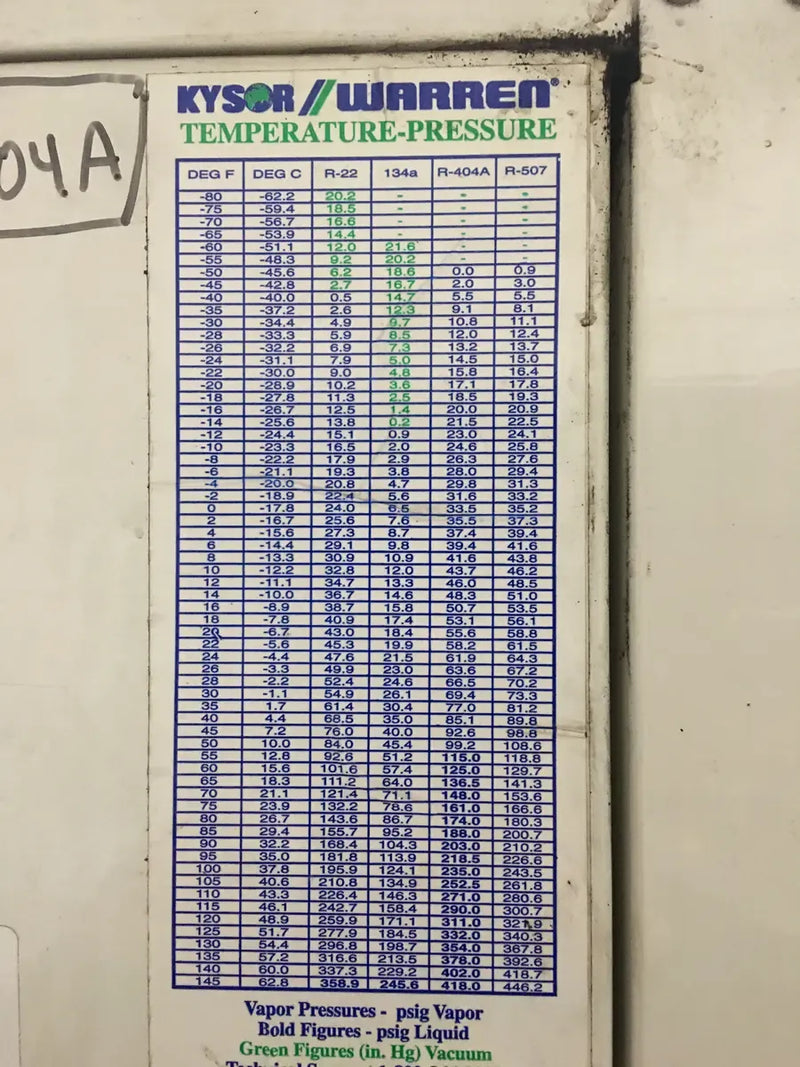 04A
KYSOR//WARREN®
TEMPERATURE-PRESSURE
DEG F DEG C R-22 134a R-404A R-507
-80 -62.2 20.2 - - -
-75 -59.4 18.5 - - -
-70 -56.7 16.6 - - -
-65 -53.9 14.4 - - -
-60 -51.1 12.0 21.6 - -
-55 -48.3 9.2 20.2 - -
-50 -45.6 6.2 18.6 0.0 0.9
-45 -42.8 2.7 16.7 2.0 3.0
-40 -40.0 0.5 14.7 5.5 5.5
-35 -37.2 2.6 12.3 9.1 8.1
-30 -34.4 4.9 9.7 10.8 11.1
-28 -33.3 5.9 8.5 12.0 12.4
-26 -32.2 6.9 7.3 13.2 13.7
-24 -31.1 7.9 5.0 14.5 15.0
-22 -30.0 9.0 4.8 15.8 16.4
-20 -28.9 10.2 3.6 17.1 17.8
-18 -27.8 11.3 2.5 18.5 19.3
-16 -26.7 12.5 1.4 20.0 20.9
-14 -25.6 13.8 0.2 21.5 22.5
-12 -24.4 15.1 0.9 23.0 24.1
-10 -23.3 16.5 2.0 24.6 25.8
-8 -22.2 17.9 2.9 26.3 27.6
-6 -21.1 19.3 3.8 28.0 29.4
-4 -20.0 20.8 4.7 29.8 31.3
-2 -18.9 22.4 5.6 31.6 33.2
0 -17.8 24.0 6.5 33.5 35.2
2 -16.7 25.6 7.6 35.5 37.3
4 -15.6 27.3 8.7 37.4 39.4
6 -14.4 29.1 9.8 39.4 41.6
8 -13.3 30.9 10.9 41.6 43.8
10 -12.2 32.8 12.0 43.7 46.2
12 -11.1 34.7 13.3 46.0 48.5
14 -10.0 36.7 14.6 48.3 51.0
16 -8.9 38.7 15.8 50.7 53.5
18 -7.8 40.9 17.4 53.1 56.1
20 -6.7 43.0 18.4 55.6 58.8
22 -5.6 45.3 19.9 58.2 61.5
24 -4.4 47.6 21.5 61.9 64.3
26 -3.3 49.9 23.0 63.6 67.2
28 -2.2 52.4 24.6 66.5 70.2
30 -1.1 54.9 26.1 69.4 73.3
35 1.7 61.4 30.4 77.0 81.2
40 4.4 68.5 35.0 85.1 89.8
45 7.2 76.0 40.0 92.6 98.8
50 10.0 84.0 45.4 99.2 108.6
55 12.8 92.6 51.2 115.0 118.8
60 15.6 101.6 57.4 125.0 129.7
65 18.3 111.2 64.0 136.5 141.3
70 21.1 121.4 71.1 148.0 153.6
75 23.9 132.2 78.6 161.0 166.6
80 26.7 143.6 86.7 174.0 180.3
85 29.4 155.7 95.2 188.0 200.7
90 32.2 168.4 104.3 203.0 210.2
95 35.0 181.8 113.9 218.5 226.6
100 37.8 195.9 124.1 235.0 243.5
105 40.6 210.8 134.9 252.5 261.8
110 43.3 226.4 146.3 271.0 280.6
115 46.1 242.7 158.4 290.0 300.7
120 48.9 259.9 171.1 311.0 321.9
125 51.7 277.9 184.5 332.0 340.3
130 54.4 296.8 198.7 354.0 367.8
135 57.2 316.6 213.5 378.0 392.6
140 60.0 337.3 229.2 402.0 418.7
145 62.8 358.9 245.6 418.0 446.2
Vapor Pressures - psig Vapor
Bold Figures - psig Liquid
Green Figures (in. Hg) Vacuum